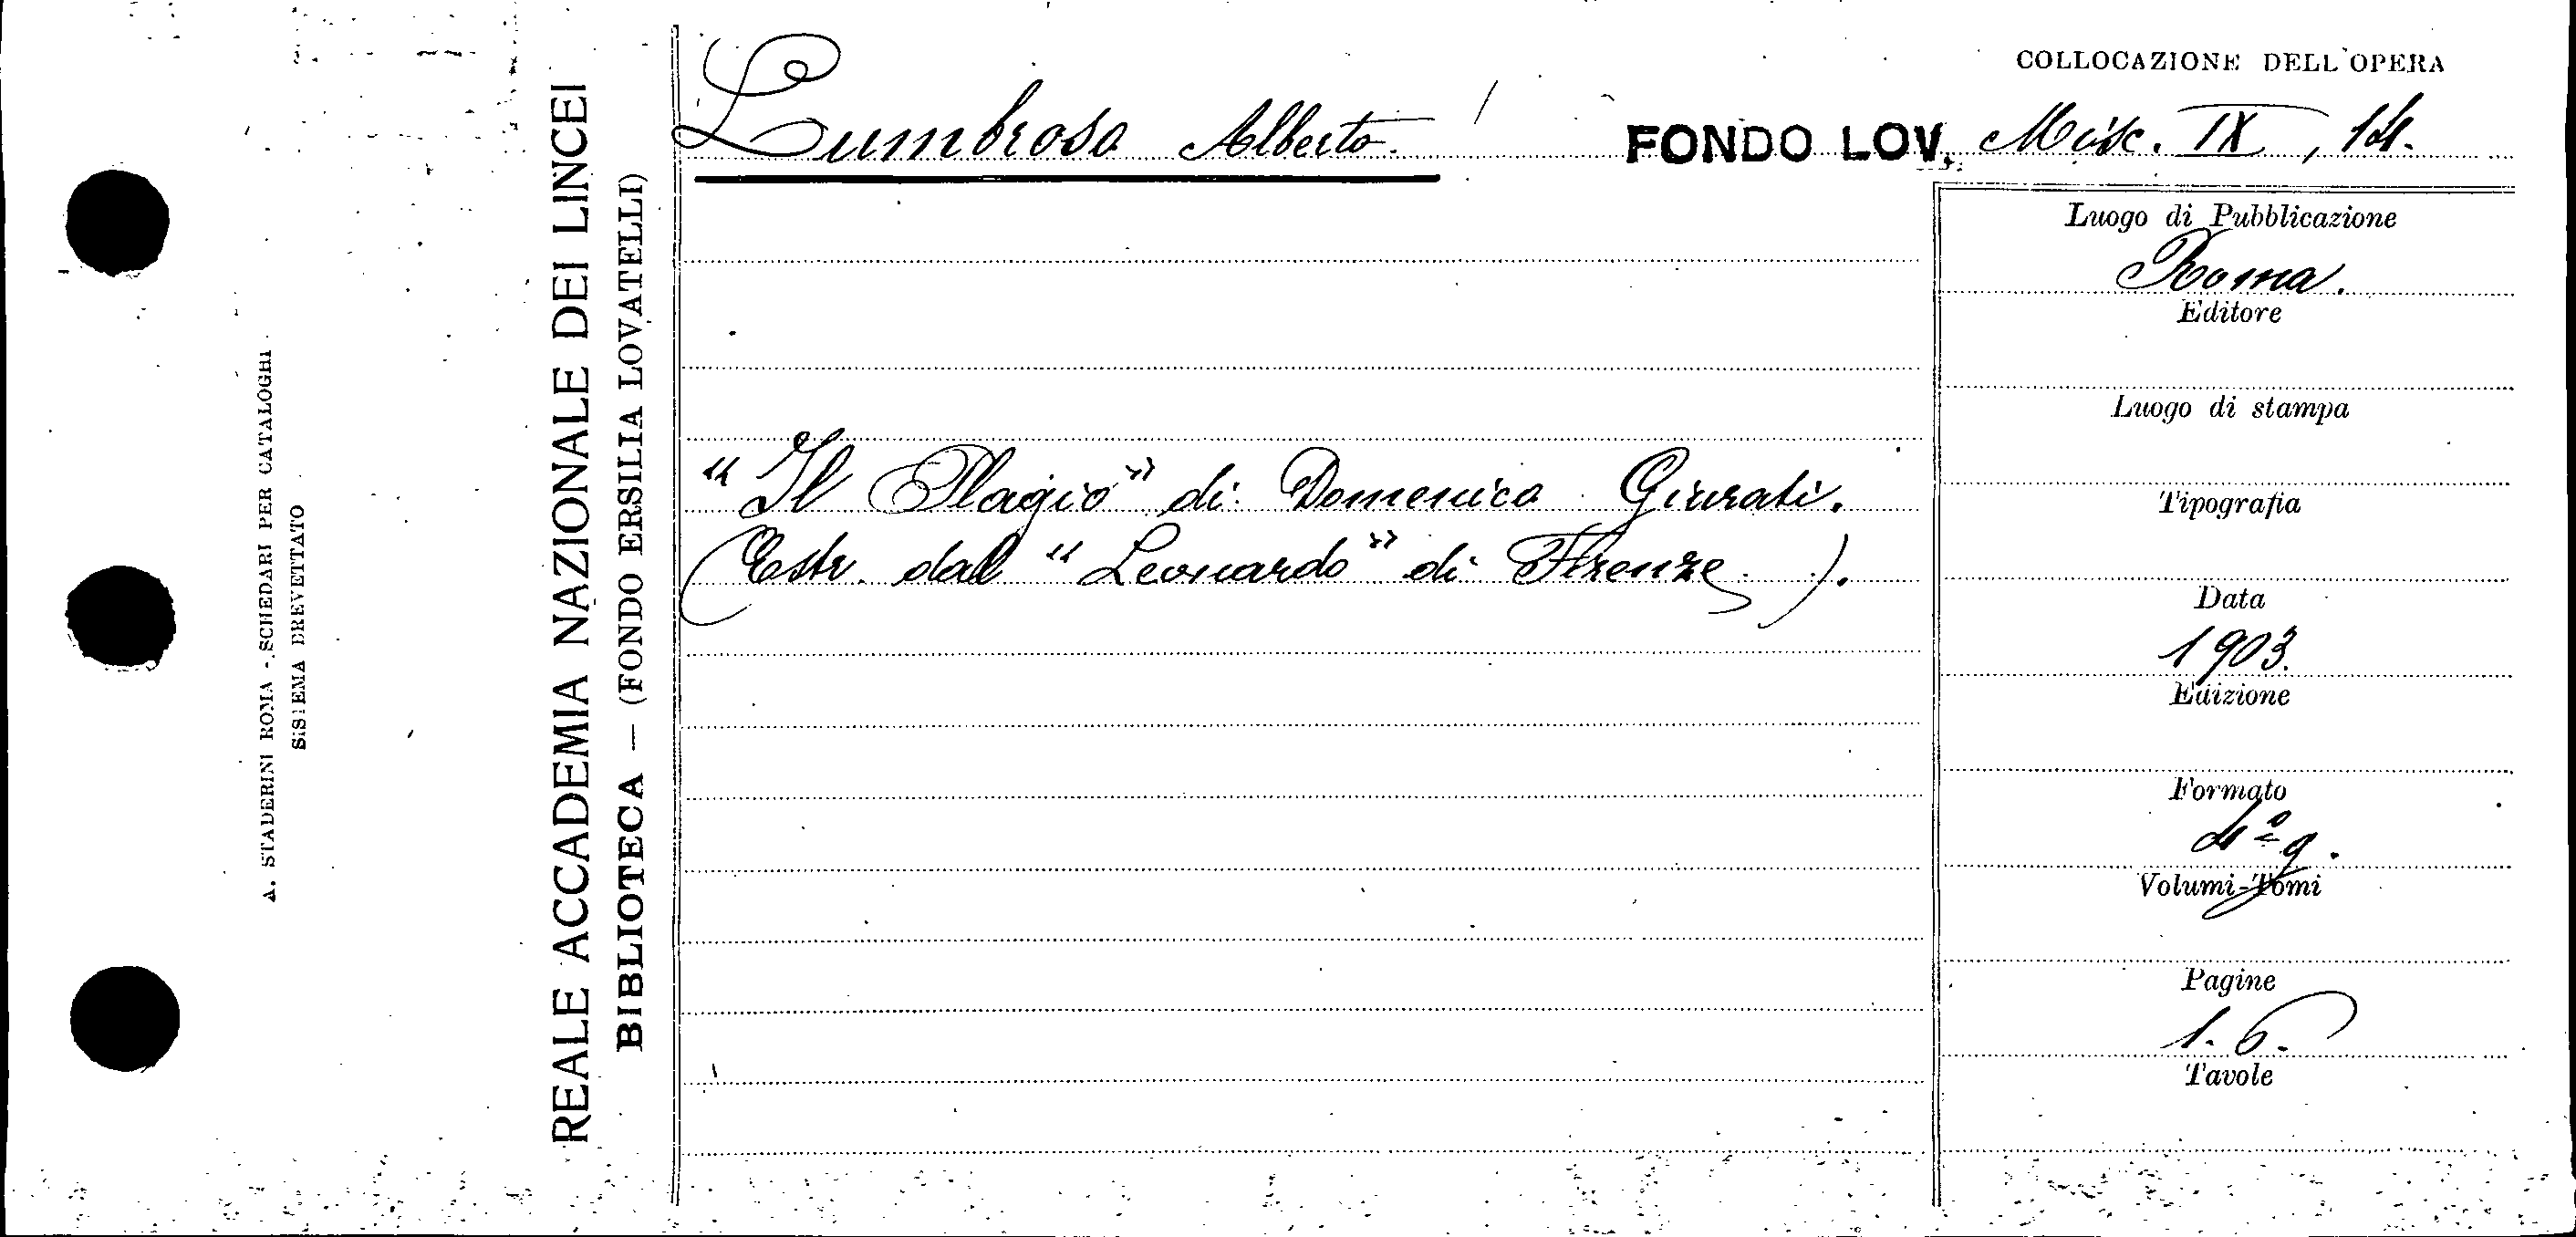 A. STADERINI ROMA - SCHEDARI PER CATALOGHI
SISTEMA BREVETTATO
REALE ACCADEMIA NAZIONALE DEI LINCEI
BIBLIOTECA — (FONDO ERSILIA LOVATELLI)
COLLOCAZIONE DELL'OPERA
Lumbroso Alberto.
FONDO LOV. Misc. IX, 14.
"Il Plagio" di Domenico Giurati.
(Estr. dal "Leonardo" di Firenze).
Luogo di Pubblicazione
Roma.
Editore
Luogo di stampa
Tipografia
Data
1903.
Edizione
Formato
4º g.
Volumi-Tomi
Pagine
1. 6.
Tavole